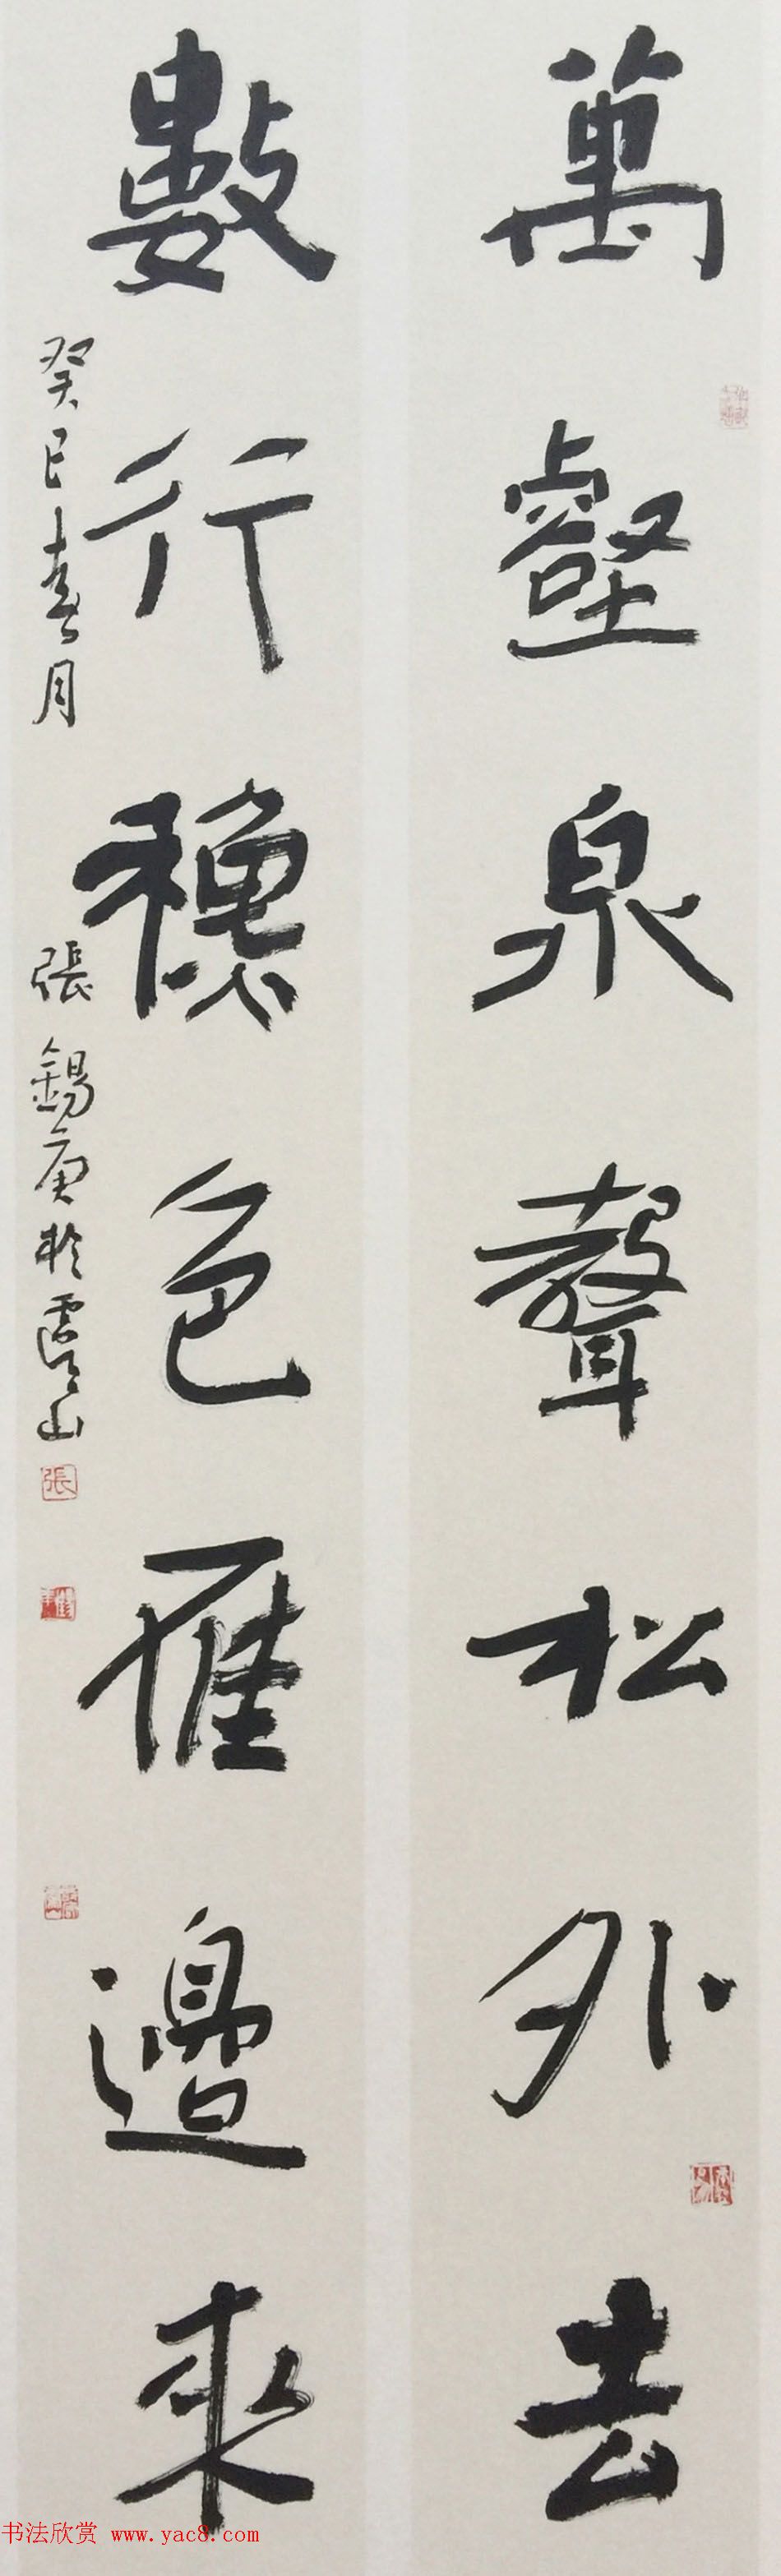 萬壑泉聲松外去
數行穐色雁邊來
癸巳春月 張錫庚於虞山
張
书法欣赏 www.yac8.com